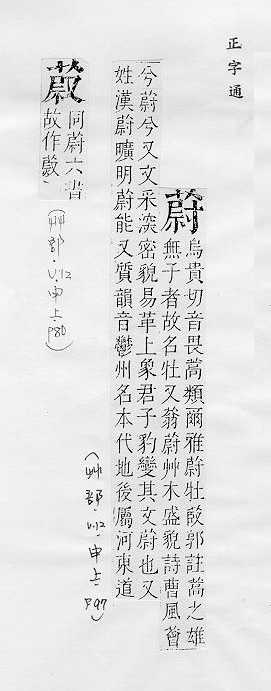 正字通
蔚
烏貴切音畏蒿類爾雅蔚牡菣郭註蒿之雄
無子者故名牡又蓊蔚艸木盛貌詩曹風薈
兮蔚兮又文采深密貌易革上象君子豹變其文蔚也又
姓漢蔚曠明蔚能又質韻音鬱州名本代地後屬河東道
(艸部.V.12.申上.P97)
同蔚六書
故作
(艸部.V.12.申上.P80)